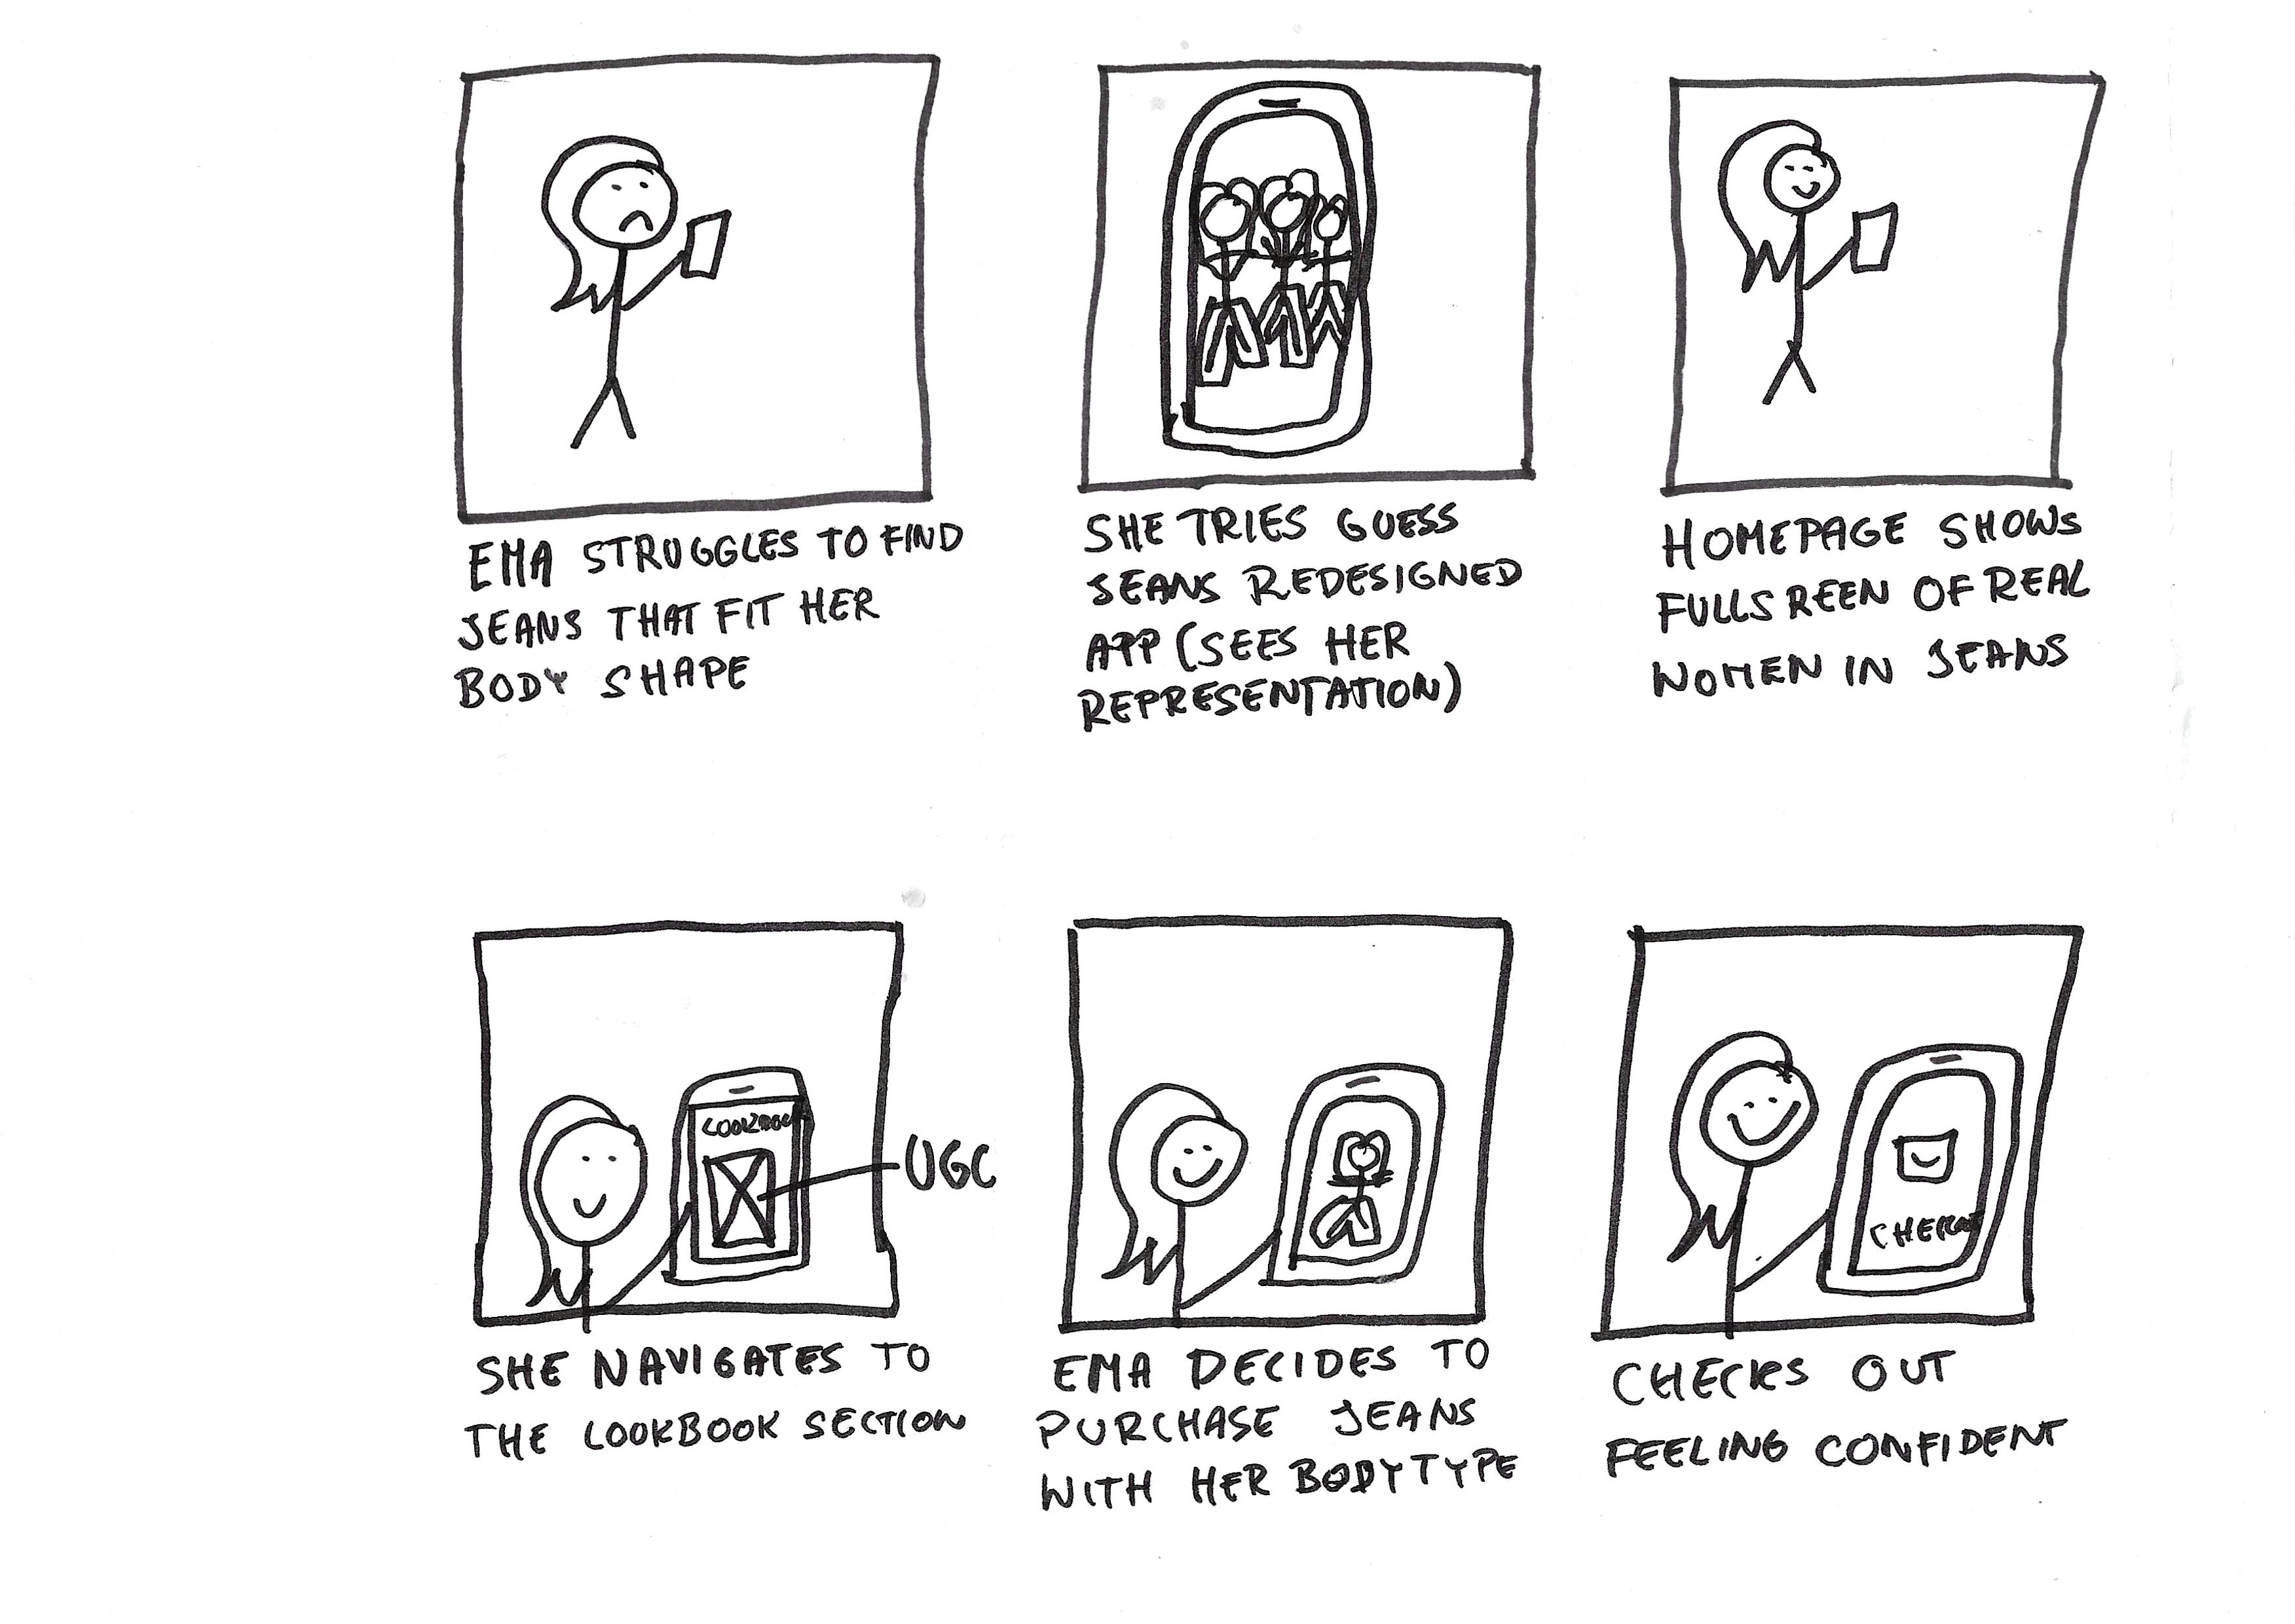 EMA STRUGGLES TO FIND
JEANS THAT FIT HER
BODY SHAPE
SHE TRIES GUESS
JEANS REDESIGNED
APP (SEES HER
REPRESENTATION)
HOMEPAGE SHOWS
FULLSREEN OF REAL
WOMEN IN JEANS
LOOKBOOK
UGC
SHE NAVIGATES TO
THE LOOKBOOK SECTION
EMA DECIDES TO
PURCHASE JEANS
WITH HER BODYTYPE
CHECKS OUT
FEELING CONFIDENT